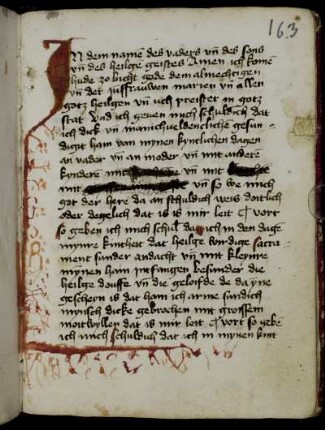 163
In dem name des vaders vn̄ des sons
vn̄ des heilge geistes Amen ich kome
hude zo bicht gode dem almechtigen
vn̄ der juffrauwen marien vn̄ allen
gotz heilgen vn̄ uch preister in gotz
stat Vnd ich geuen mich schuldich dat
ich dick vn̄ manichueldencliche gesun
diget hain van mynen kyntlichen dagen
an vader vn̄ an moder vn̄ mit andere
kyndere mit vn̄ mit
mit vn̄ so we mich
got der here da an schuldich weis doitlich
oder degelich dat is is mir leit vort
so geben ich mich schul da ich in den dage
mynre kintheit dat heilge wirdige sacra
ment sunder andacht vn̄ mit kleynre
mynen hain intfangen besunder die
heilge douffe vn̄ die geloifde die da yne
geschein is dat hain ich arme sundich
mynsch dicke gebrochen mit groissem
moitwyllen dat is mir leit vort so gebē
ich mich schuldich dat ich in mynen kint